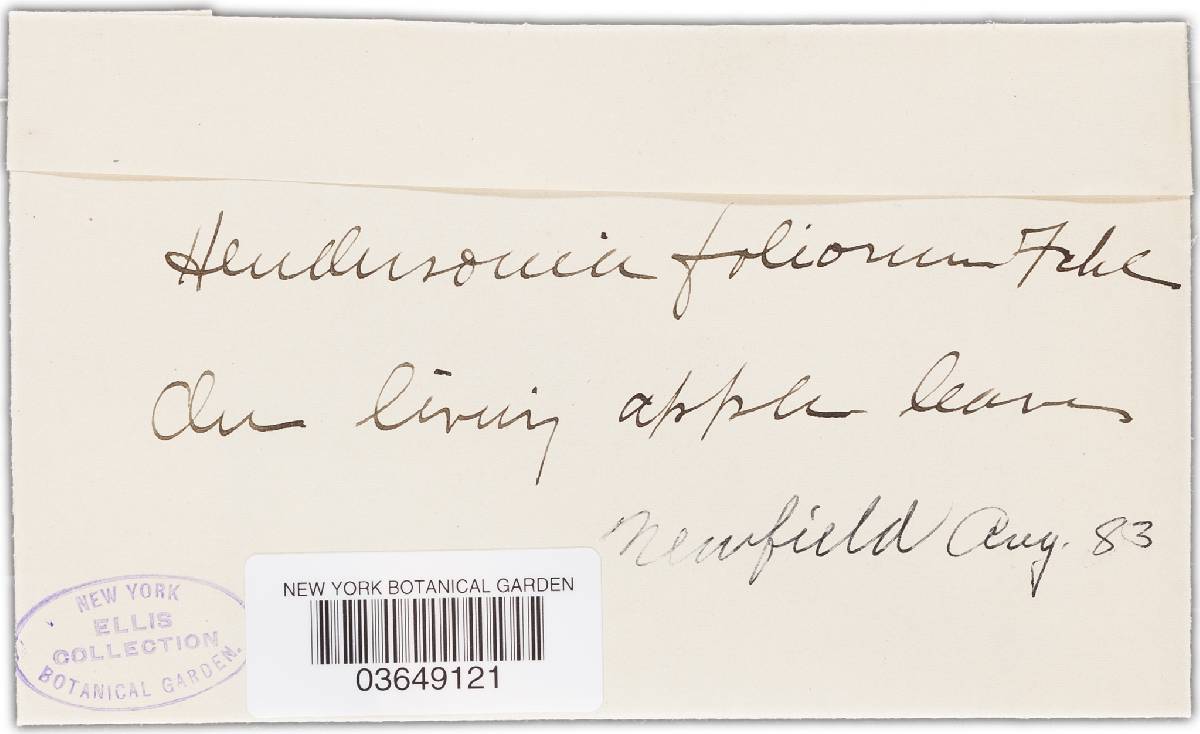 Hendersonia foliorum Fckl
On living apple leaves
Newfield Aug. 83
NEW YORK BOTANICAL GARDEN
03649121
NEW YORK
ELLIS
COLLECTION
BOTANICAL GARDEN.